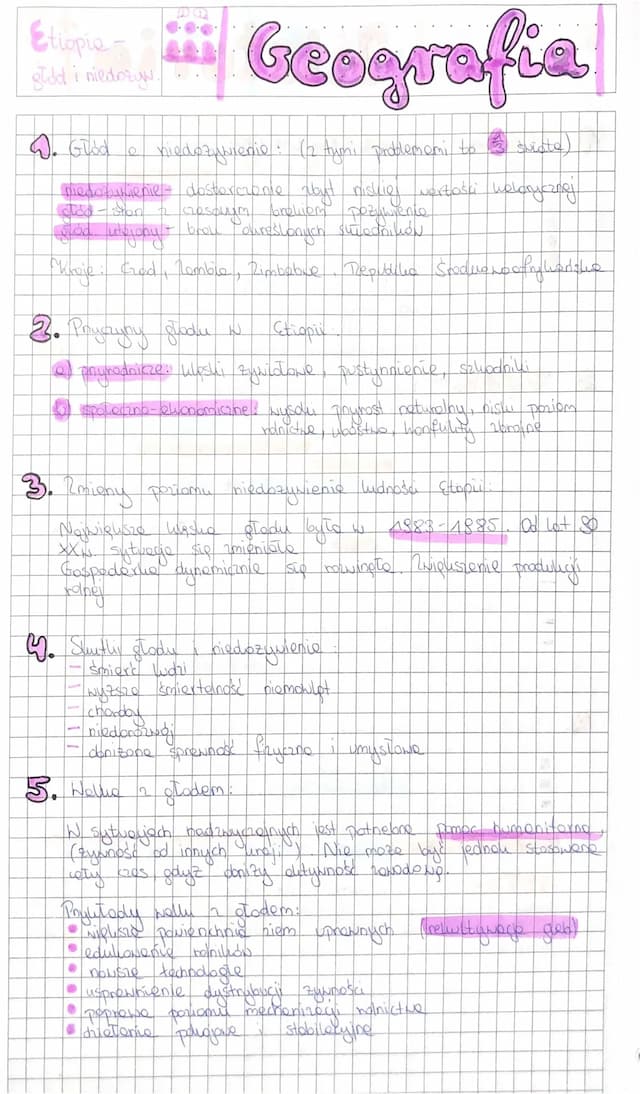 Etiopia –
głód i niedożyw.
Geografia
1. Głód a niedożywienie: (z tymi problemami to ⅓ świata)
niedożywienie – dostarczanie zbyt niskiej wartości kalorycznej
głód – stan z czasowym brakiem pożywienia
głód utajony – brak określonych składników
Kraje: Czad, Zambia, Zimbabwe, Republika Środkowoafrykańska
2. Przyczyny głodu w Etiopii.
a) przyrodnicze: klęski żywiołowe, pustynnienie, szkodniki
b) społeczno-ekonomiczne: wysoki przyrost naturalny, niski poziom
rolnictwa, ubóstwo, konflikty zbrojne
3. Zmiany poziomu niedożywienia ludności Etiopii:
Największa klęska głodu była w 1983-1985. Od lat 90
XXw. sytuacja się zmieniła
Gospodarka dynamicznie się rozwinęła. Zwiększenie produkcji
rolnej
4. Skutki głodu i niedożywienia:
– śmierć ludzi
– wyższa śmiertelność niemowląt
– choroby
– niedorozwój
– obniżona sprawność fizyczna i umysłowa
5. Walka z głodem:
W sytuacjach nadzwyczajnych jest potrzebna pomoc humanitarna
(żywność od innych kraji). Nie może być jednak stosowana
cały czas gdyż obniży aktywność zawodową.
Przykłady walki z głodem:
• większa powierzchnia ziem uprawnych (rekultywacja gleb)
• edukowanie rolników
• nowsze technologie
• usprawnienie dystrybucji żywności
• poprawa poziomu mechanizacji rolnictwa
• działania pokojowe i stabilizacyjne